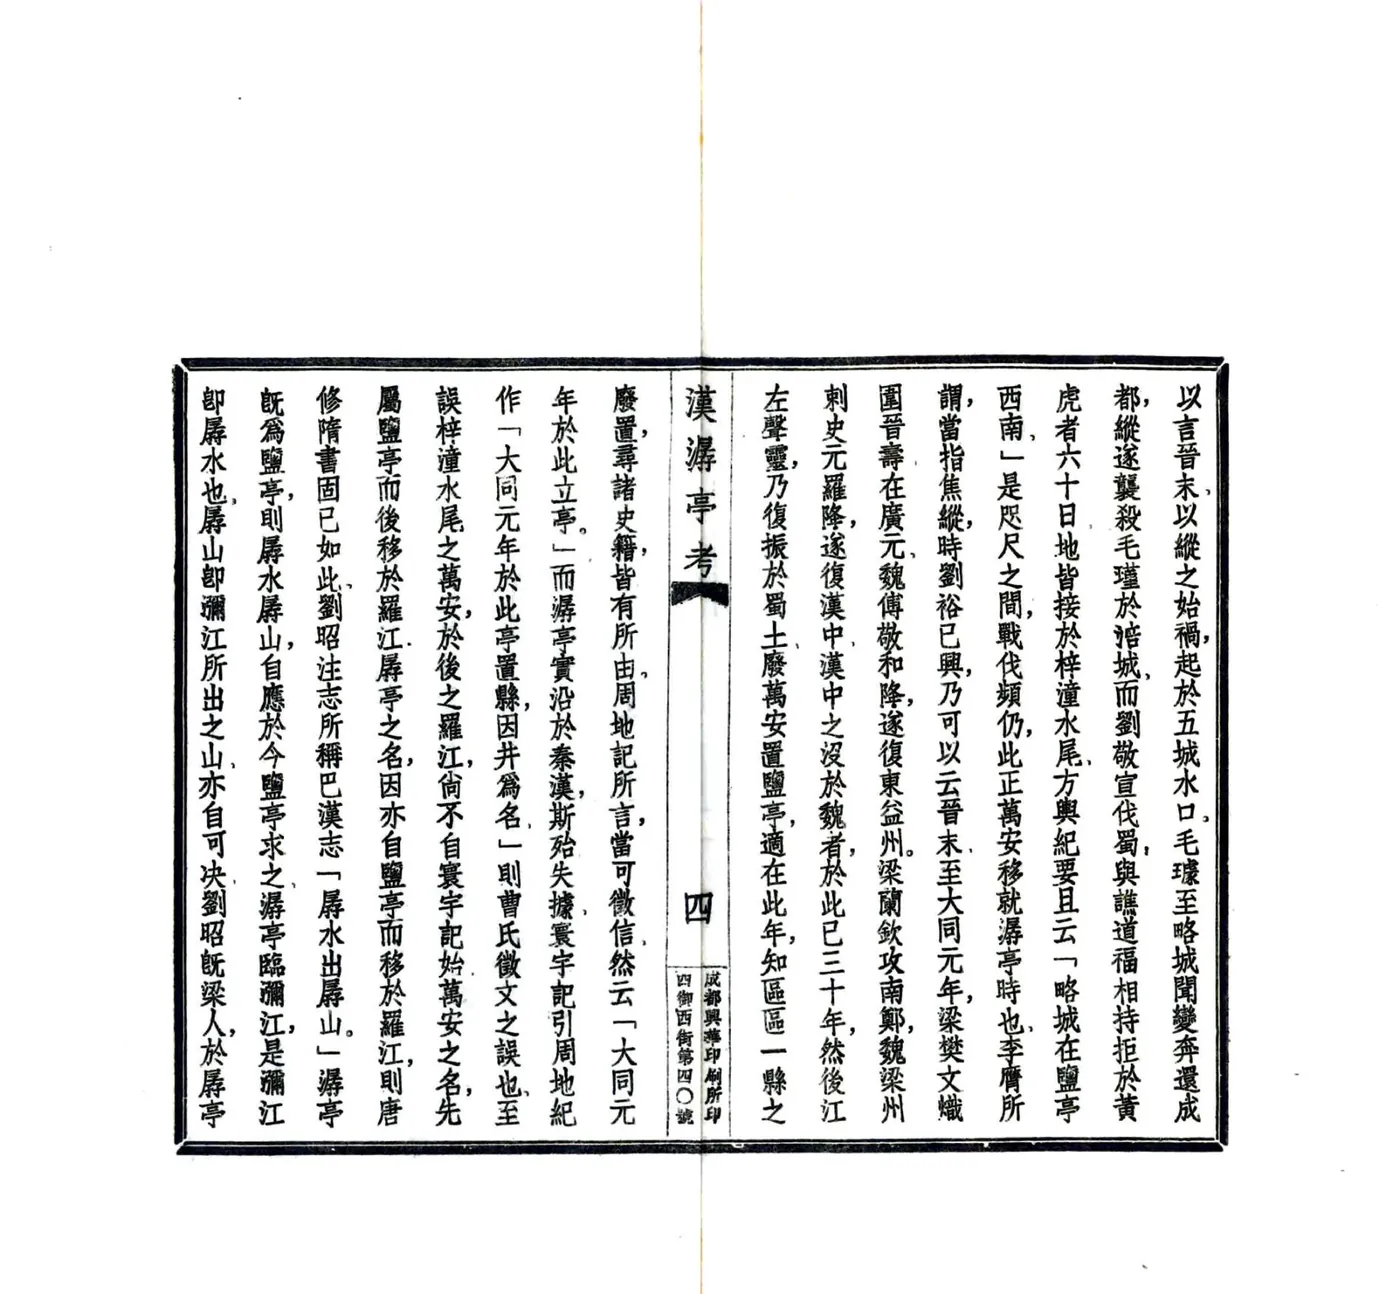 以言晉末、以縱之始禍，起於五城水口、毛璩至略城聞變奔還成
都，縱遂襲殺毛瑾於涪城、而劉敬宣伐蜀，與譙道福相持拒於黃
虎者六十日、地皆接於梓潼水尾、方輿紀要且云「略城在鹽亭
西南、」是咫尺之間，戰伐頻仍，此正萬安移就潺亭時也、李膺所
謂，當指焦縱，時劉裕已興，乃可以云晉末、至大同元年，梁樊文熾
圍晉壽在廣元、魏傅敬和降，遂復東益州。梁蘭欽攻南鄭，魏梁州
刺史元羅降，遂復漢中、漢中之沒於魏者，於此已三十年，然後江
左聲靈，乃復振於蜀土、廢萬安置鹽亭，適在此年，知區區一縣之
漢潺亭考
四
成都興華印刷所印
四御西街第四〇號
廢置，尋諸史籍，皆有所由。周地記所言，當可徵信、然云「大同元
年於此立亭。」而潺亭實沿於秦漢，斯殆失據、寰宇記引周地紀
作「大同元年於此亭置縣，因井爲名、」則曹氏徵文之誤也、至
誤梓潼水尾之萬安，於後之羅江，尙不自寰宇記始、萬安之名，先
屬鹽亭而後移於羅江、孱亭之名，因亦自鹽亭而移於羅江，則唐
修隋書固已如此、劉昭注志所稱巴漢志「孱水出孱山。」潺亭
旣爲鹽亭，則孱水孱山，自應於今鹽亭求之、潺亭臨瀰江，是瀰江
卽孱水也、孱山卽瀰江所出之山、亦自可决、劉昭旣梁人，於孱亭